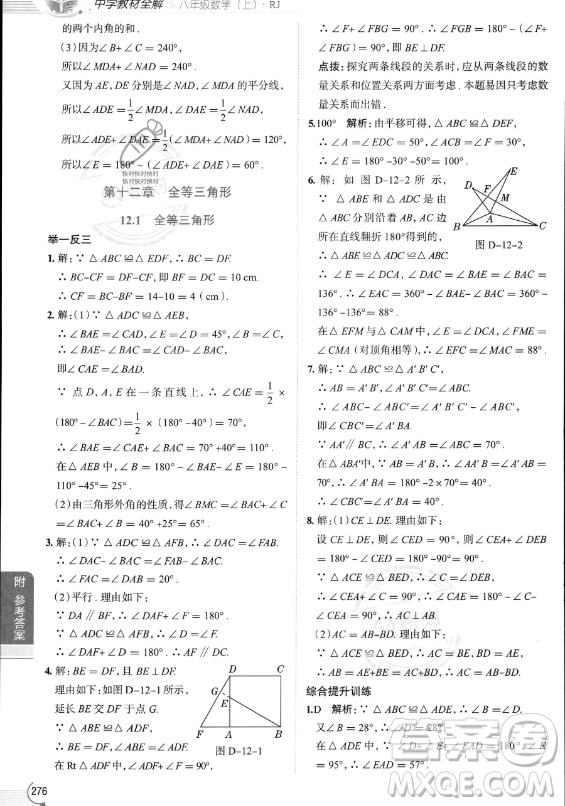 中学教材全解 八年级数学(上)·RJ
的两个内角的和.
(3)因为∠B+∠C=240°,
所以∠MDA+∠DAN=240°.
又因为AE,DE分别是∠NAD,∠MDA的平分线,
所以∠ADE=1/2∠MDA,∠DAE=1/2∠NAD.
所以∠ADE+∠DAE=1/2(∠MDA+∠NAD)=120°,
所以∠E=180°-(∠ADE+∠DAE)=60°.
第十二章 全等三角形
12.1 全等三角形
举一反三
1.解:∵△ABC≌△EDF,∴BC=DF.
∴BC-CF=DF-CF,即BF=DC=10 cm.
∴CF=BC-BF=14-10=4(cm).
2.解:(1)∵△ADC≌△AEB,
∴∠BAE=∠CAD,∠E=∠D=45°,∠B=∠C,
∴∠BAE-∠BAC=∠CAD-∠BAC,
即∠CAE=∠BAD.
∵点D,A,E在一条直线上,∴∠CAE=1/2×
(180°-∠BAC)=1/2×(180°-40°)=70°,
∴∠BAE=∠BAC+∠CAE=70°+40°=110°.
在△AEB中,∠B=180°-∠BAE-∠E=180°-
110°-45°=25°.
(2)由三角形外角的性质,得∠BMC=∠BAC+∠C
=∠BAC+∠B=40°+25°=65°.
3.解:(1)∵△ADC≌△AFB,∴∠DAC=∠FAB.
∴∠DAC-∠BAC=∠FAB-∠BAC.
∴∠FAC=∠DAB=20°.
(2)平行.理由如下:
∵DA∥BF,∴∠DAF+∠F=180°.
∵△ADC≌△AFB,∴∠D=∠F.
∴∠DAF+∠D=180°.∴AF∥DC.
4.解:BE=DF,且BE⊥DF.
理由如下:如图D-12-1所示,
延长BE交DF于点G.
∵△ABE≌△ADF,
∴BE=DF,∠ABE=∠ADF.
在Rt△ADF中,∠ADF+∠F=90°,
D
C
G
E
F
A
B
图D-12-1
附 参考答案
276
∴∠F+∠ABE=90°,∴∠FGB=180°-(∠F+
∠FBG)=90°,即BE⊥DF.
点拨:探究两条线段的关系时,应从两条线段的数
量关系和位置关系两方面考虑.本题易因只考虑数
量关系而出错.
5.100° 解析:由平移可得,△ABC≌△DEF,
∴∠A=∠EDC=50°,∠ACB=∠F=30°,
∴∠B=180°-30°-50°=100°.
6.解:如图D-12-2所示,
∵△ABE和△ADC是△
ABC分别沿着AB,AC边
翻折180°得到的,
∴△ABE≌△ABC≌△ADC.
∴∠E=∠DCA=∠ACB,∠BAE=∠BAC=
136°.∴∠CAE=360°-∠BAE-∠BAC=360°-
136°-136°=88°.
在△EFM与△CAM中,∠E=∠DCA,∠FME=
∠CMA(对顶角相等),∴∠EFC=∠MAC=88°.
D
F
E
M
A
B
C
图D-12-2
7.解:∵△ABC≌△A′B′C′,
∴AB=A′B′,∠A′B′C′=∠ABC.
∴∠ABC-∠ABC′=∠A′B′C′-∠ABC′,
即∠CBC′=∠A′BA.
∵AA′∥BC,∴∠A′AB=∠ABC=70°.
在△ABA′中,∵AB=A′B,∴∠AA′B=∠A′AB=70°.
∴∠A′BA=180°-2×70°=40°.
∴∠CBC′=∠A′BA=40°.
8.解:(1)CE⊥DE.理由如下:
设CE⊥DE,则∠CED=90°,∴∠CEA+∠DEB
=180°-∠CED=180°-90°=90°,
∵△ACE≌△BED,∴∠C=∠DEB,
∴∠CEA+∠C=90°,∴∠A=180°-(∠CEA+
∠C)=90°,∴AC⊥AB.
(2)AC=AB-BD.理由如下:
∵△ACE≌△BED,∴AC=BE,AE=BD,
∴AB=AE+BE=BD+AC,∴AC=AB-BD.
综合提升训练
1.D 解析:∵△ABC≌△ADE,∴∠B=∠D.
又∠B=28°,∴∠D=28°.
在△ADE中,∠D+∠E+∠EAD=180°,∠E=
95°,∴∠EAD=57°.
答案圈
MXQE.COM